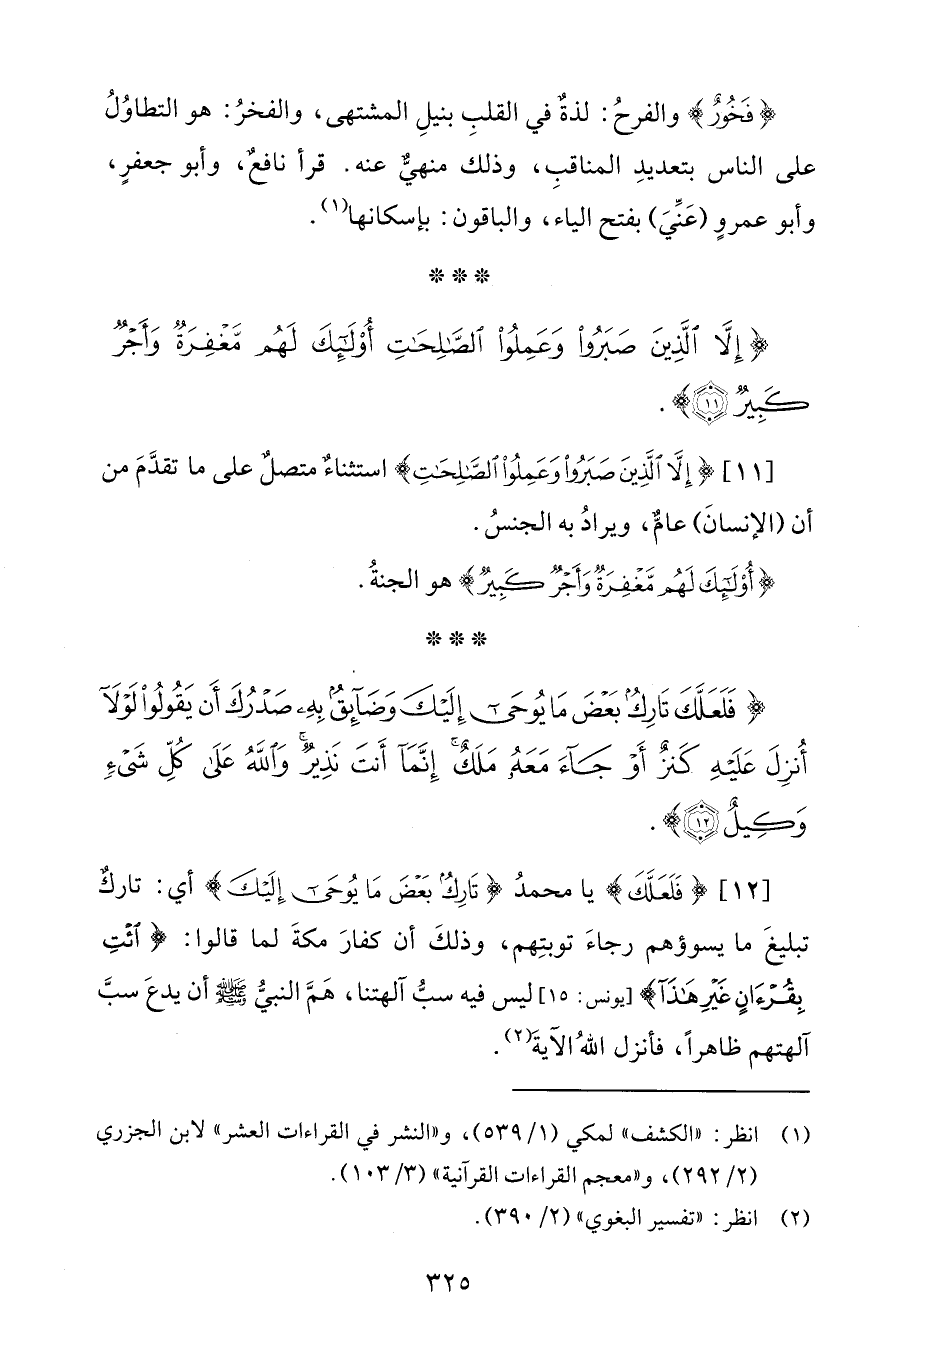 ﴿فَخُورٌ﴾ والفرحُ: لذةٌ في القلبِ بنيلِ المشتهى، والفخرُ: هو التطاوُلُ
على الناس بتعديدِ المناقبِ، وذلك منهيٌّ عنه. قرأ نافعٌ، وأبو جعفرٍ،
وأبو عمرٍو (عَنِّيَ) بفتح الياء، والباقون: بإسكانها(١).
* * *
﴿إِلَّا ٱلَّذِينَ صَبَرُوا۟ وَعَمِلُوا۟ ٱلصَّٰلِحَٰتِ أُو۟لَٰٓئِكَ لَهُم مَّغْفِرَةٌ وَأَجْرٌ
كَبِيرٌ ١١﴾.
[١١] ﴿إِلَّا ٱلَّذِينَ صَبَرُوا۟ وَعَمِلُوا۟ ٱلصَّٰلِحَٰتِ﴾ استثناءٌ متصلٌ على ما تقدَّمَ من
أن (الإنسانَ) عامٌّ، ويرادُ به الجنسُ.
﴿أُو۟لَٰٓئِكَ لَهُم مَّغْفِرَةٌ وَأَجْرٌ كَبِيرٌ﴾ هو الجنةُ.
* * *
﴿فَلَعَلَّكَ تَارِكٌۢ بَعْضَ مَا يُوحَىٰٓ إِلَيْكَ وَضَآئِقٌۢ بِهِۦ صَدْرُكَ أَن يَقُولُوا۟ لَوْلَآ
أُنزِلَ عَلَيْهِ كَنزٌ أَوْ جَآءَ مَعَهُۥ مَلَكٌ ۚ إِنَّمَآ أَنتَ نَذِيرٌ ۚ وَٱللَّهُ عَلَىٰ كُلِّ شَىْءٍ
وَكِيلٌ ١٢﴾.
[١٢] ﴿فَلَعَلَّكَ﴾ يا محمدُ ﴿تَارِكٌۢ بَعْضَ مَا يُوحَىٰٓ إِلَيْكَ﴾ أي: تاركٌ
تبليغَ ما يسوؤهم رجاءَ توبتِهم، وذلكَ أن كفارَ مكةَ لما قالوا: ﴿ٱئْتِ
بِقُرْءَانٍ غَيْرِ هَٰذَآ﴾ [يونس: ١٥] ليس فيه سبُّ آلهتنا، هَمَّ النبيُّ ﷺ أن يدعَ سبَّ
آلهتهم ظاهراً، فأنزل اللهُ الآيةَ(٢).
(١) انظر: «الكشف» لمكي (١/ ٥٣٩)، و«النشر في القراءات العشر» لابن الجزري
(٢/ ٢٩٢)، و«معجم القراءات القرآنية» (٣/ ١٠٣).
(٢) انظر: «تفسير البغوي» (٢/ ٣٩٠).
٣٢٥